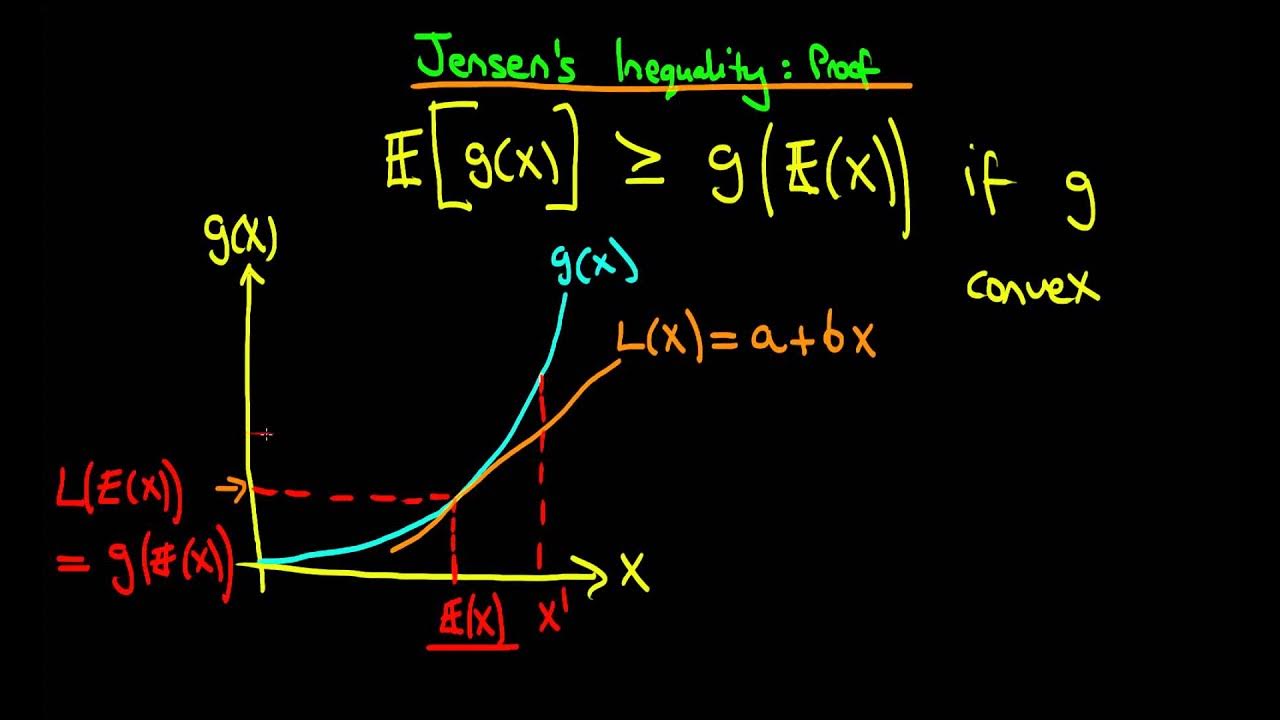 Jensen's Inequality: Proof
𝔼[g(x)] ≥ g(𝔼(x)) if g
convex
g(x)
g(x)
L(x) = a+bx
L(𝔼(x))
= g(𝔼(x))
X
𝔼(x)
x'